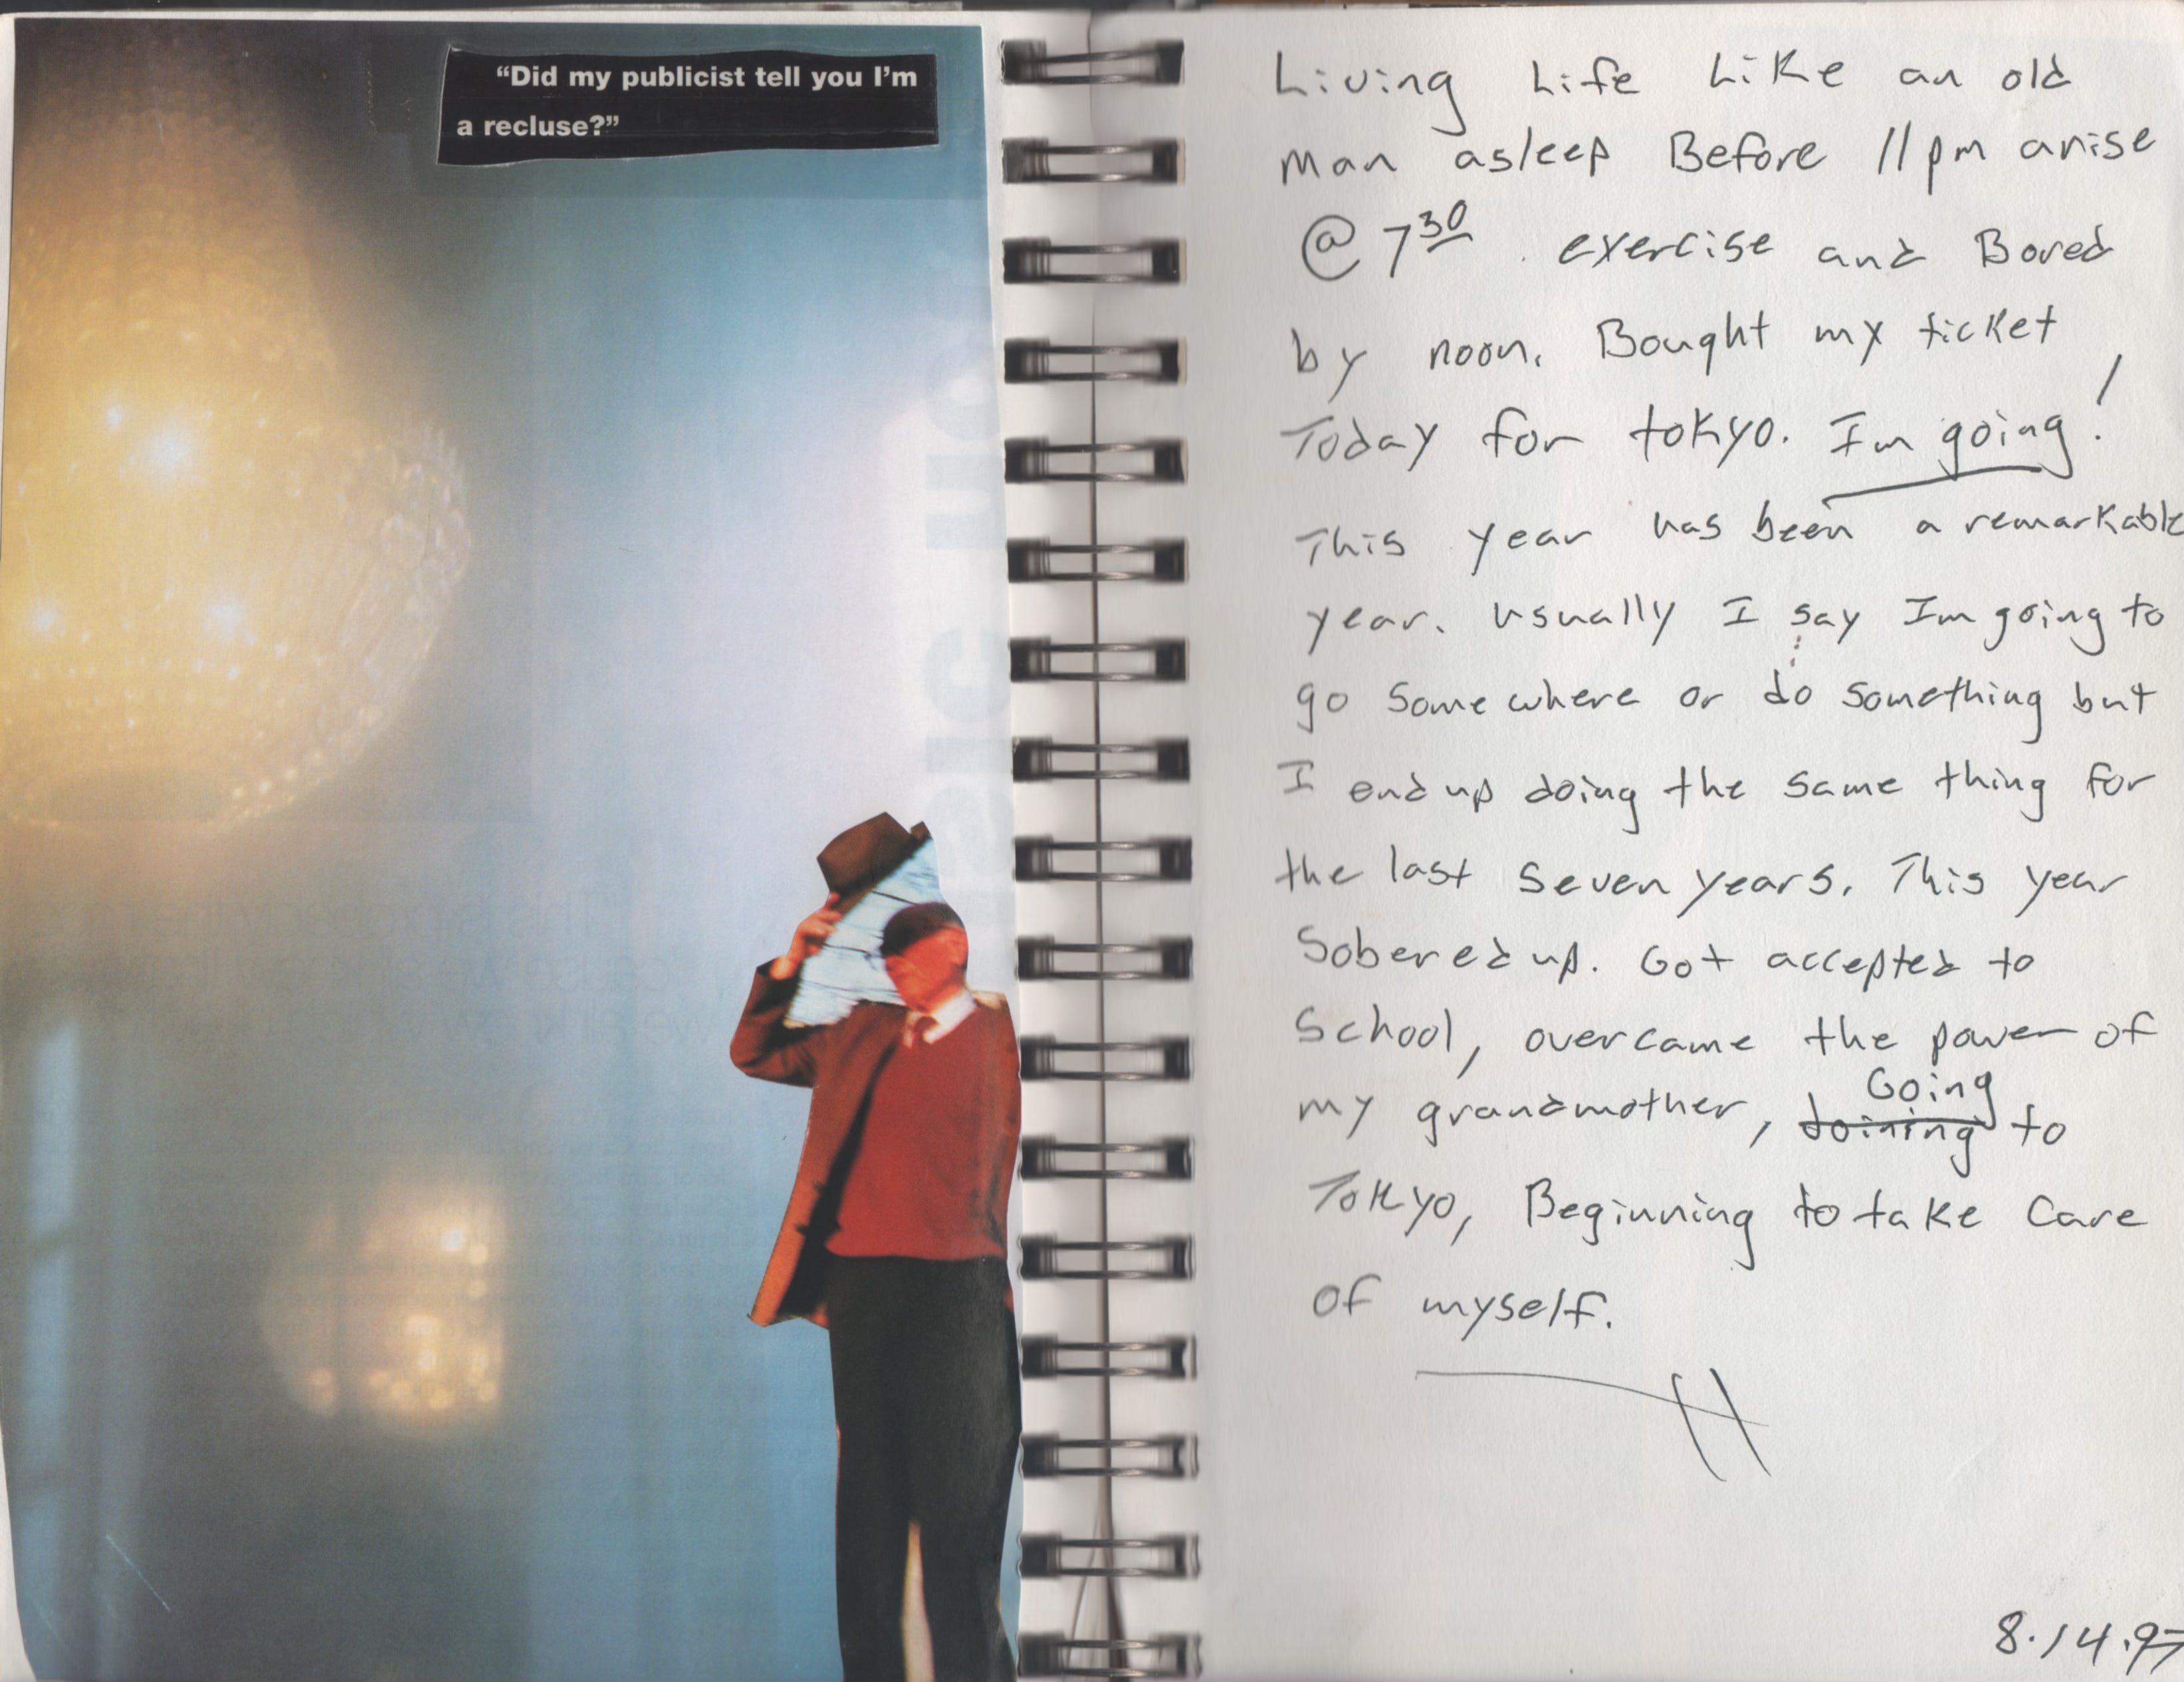 “Did my publicist tell you I’m
a recluse?”
Living Life Like an old
man asleep Before 11pm arise
@ 7 30 . exercise and Bored
by noon. Bought my ticket
Today for tokyo. Im going!
This year has been a remarkable
year. usually I say Im going to
go somewhere or do something but
I end up doing the same thing for
the last seven years. This year
Sobered up. Got accepted to
School, overcame the power of
my grandmother, Going to
Tokyo, Beginning to take Care
of myself.
8.14.97